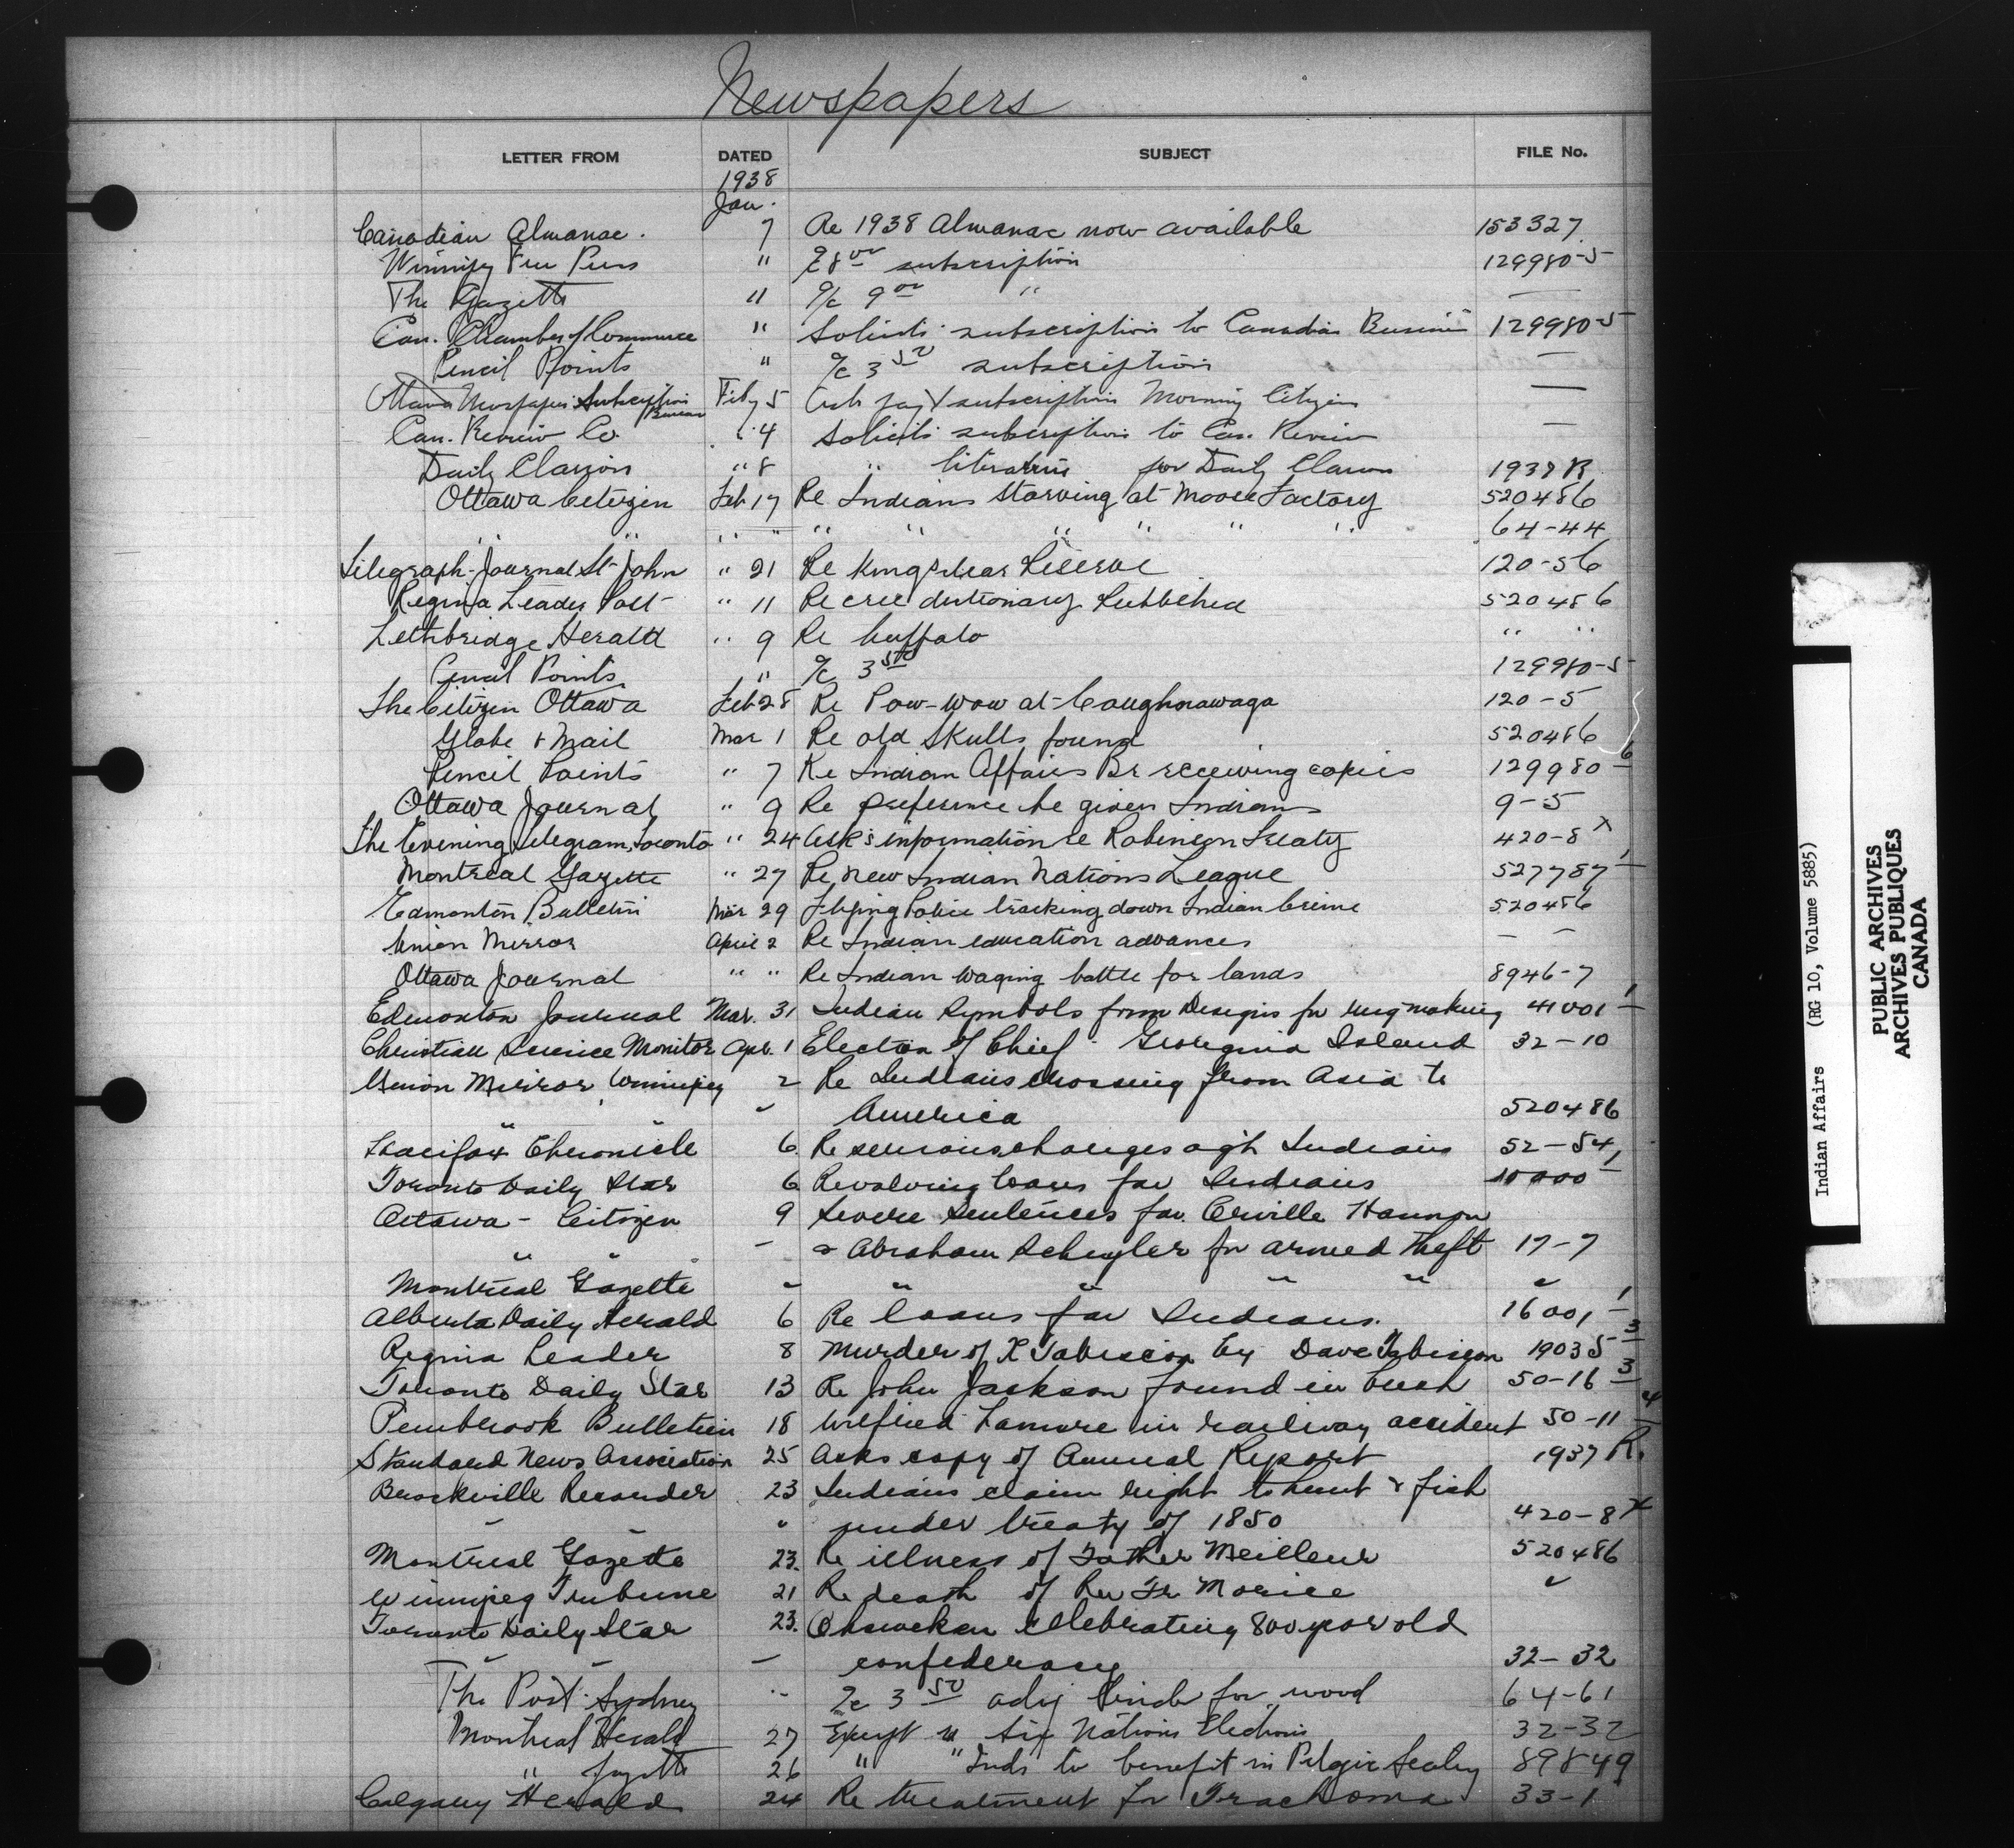 Newspapers
LETTER FROM DATED SUBJECT FILE No.
1938
Jan.
Canadian Almanac. 7 Re 1938 Almanac now available 153327
Winnipeg Free Press " 8 00 subscription 129980-5
The Gazette " a/c 9 00 " —
Can. Chamber of Commerce " Solicits subscription to Canadian Business 129980-5
Pencil Points " a/c 3 50 subscription —
Ottawa Newspaper Subscription Bureau Feby 5 subscription Morning Citizen —
Can. Review Co. " 4 Solicits subscription to Can. Review —
Daily Clarion " 8 " literature for Daily Clarion 1937 R
Ottawa Citizen Feb 17 Re Indians Starving at Moose Factory 520486
" " " " " " " " " " 64-44
Telegraph-Journal St John " 21 Re Kingsclear Reserve 120-56
Regina Leader Post " 11 Re cree dictionary Published 520486
Lethbridge Herald " 9 Re buffalo " "
Pencil Points " a/c 3 50 129980-5
The Citizen Ottawa Feb 28 Re Pow-wow at Caughnawaga 120-5
Globe & Mail Mar 1 Re old Skulls found 520486
Pencil Points " 7 Re Indian Affairs Br receiving copies 129980-6
Ottawa Journal " 9 Re preference be given Indians 9-5
The Evening Telegram, Toronto " 24 Ask's information re Robinson Treaty 420-8 x
Montreal Gazette " 27 Re new Indian Nations League 527787-1
Edmonton Bulletin Mar 29 Flying Police tracking down Indian Crime 520486
Union Mirror April 2 Re Indian education advances — —
Ottawa Journal " " Re Indian waging battle for lands 8946-7
Edmonton Journal Mar. 31 Indian Symbols from Designs for rug making 41001-1
Christian Science Monitor Apr. 1 Election of Chief - Georgina Island 32-10
Union Mirror, Winnipeg 2 Re Indians crossing from Asia to
" " America 520486
Halifax Chronicle 6 Re serious charges agst Indians 52-54
Toronto Daily Star 6 Revolving loans for Indians 10000-1
Ottawa - Citizen 9 Severe Sentences for Orville Hannon
" " - & Abraham Schuyler for armed theft 17-7
Montreal Gazette " " " " " "
Alberta Daily Herald 6 Re loans for Indians. 16001-1
Regina Leader 8 Murder of K Tabiscon by Dave Tabiscon 19035-3
Toronto Daily Star 13 Re John Jackson found in bush 50-16-3
Pembrook Bulletin 18 Wilfred Lamure in railway accident 50-11-4
Standard News Association 25 Asks copy of Annual Report 1937 R.
Brockville Recorder 23 Indians claim right to hunt & fish
" " under treaty of 1850 420-8 x
Montreal Gazette 23. Re illness of Father Meilleur 520486
Winnipeg Tribune 21 Re death of Rev Fr Morice "
Toronto Daily Star 23. Ohsweken celebrating 800 year old
" " — confederacy 32-32
The Post Sydney " a/c 3 50 advg tender for wood 64-61
Montreal Herald 27 Excerpt re Six Nations Elections 32-32
" Gazette 26 " " Inds to benefit in Pelagic Sealing 89849
Calgary Herald 24 Re treatment for Trachoma 33-1
Indian Affairs (RG 10, Volume 5885)
PUBLIC ARCHIVES
ARCHIVES PUBLIQUES
CANADA